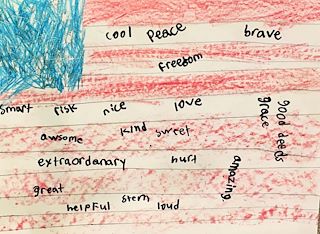 cool peace brave
freedom
smart risk nice love
grace good deeds
awsome kind sweet
extraordanary hurt
amazing
great
helpful stern loud